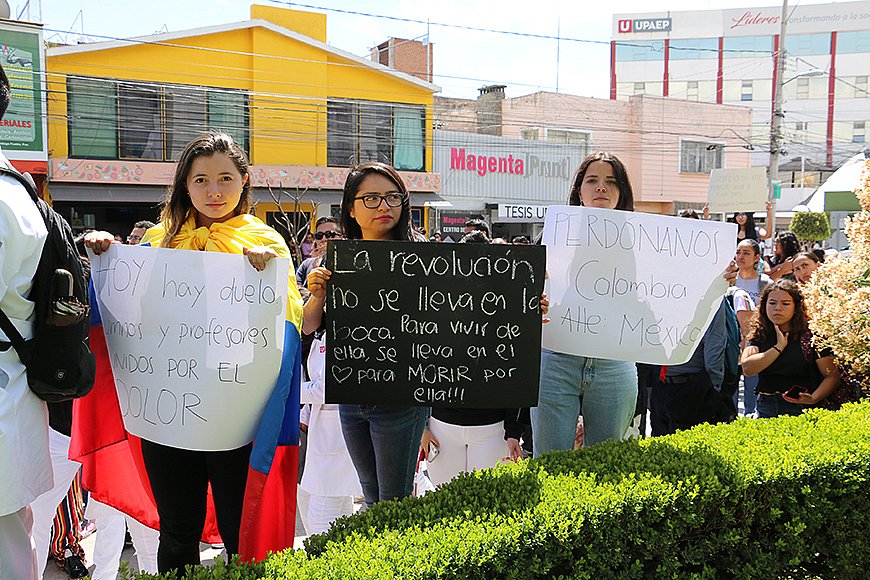 UPAEP
Líderes
transformando a la
Magenta Print
TESIS
Magenta
HOY hay duelo,
mnos y profesores
NIDOS POR EL
DOLOR
La revolución
no se lleva en la
boca. Para vivir de
ella, se lleva en el
♡ para MORIR por
ella!!!
PERDÓNANOS
Colombia
Atte México